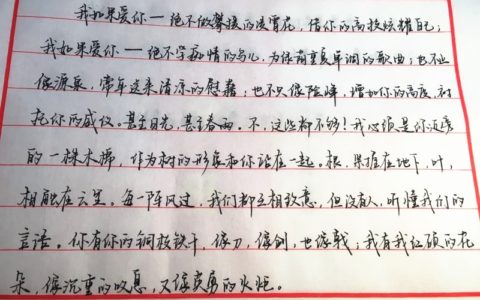 我如果爱你——绝不做攀援的凌霄花，借你的高枝炫耀自己；
我如果爱你——绝不学痴情的鸟儿，为绿荫重复单调的歌曲；也不止
像源泉，常年送来清凉的慰藉；也不只像险峰，增加你的高度，衬
托你的威仪。甚至日光，甚至春雨。不，这些都不够！我必须是你近旁
的一株木棉，作为树的形象和你站在一起。根，紧握在地下，叶，
相融在云里。每一阵风过，我们都互相致意，但没有人，听懂我们的
言语。你有你的铜枝铁干，像刀，像剑，也像戟；我有我红硕的花
朵，像沉重的叹息，又像英勇的火炬。